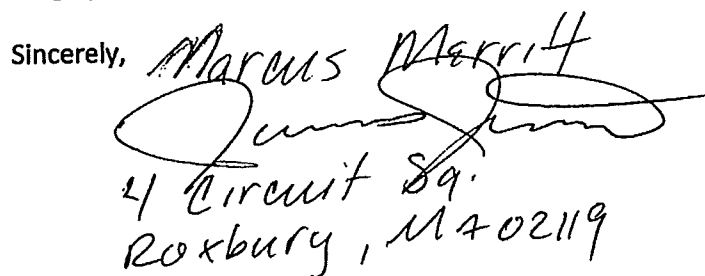 Sincerely, Marcus Merritt
4 Circuit Sq.
Roxbury, MA 02119